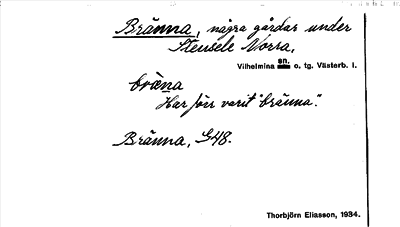 Bränna, några gårdar under
Stensele Norra,
Vilhelmina sn. o. tg. Västerb. l.
bræ̀na
Har förr varit "bränna".
Bränna, S48.
Thorbjörn Eliasson, 1934.